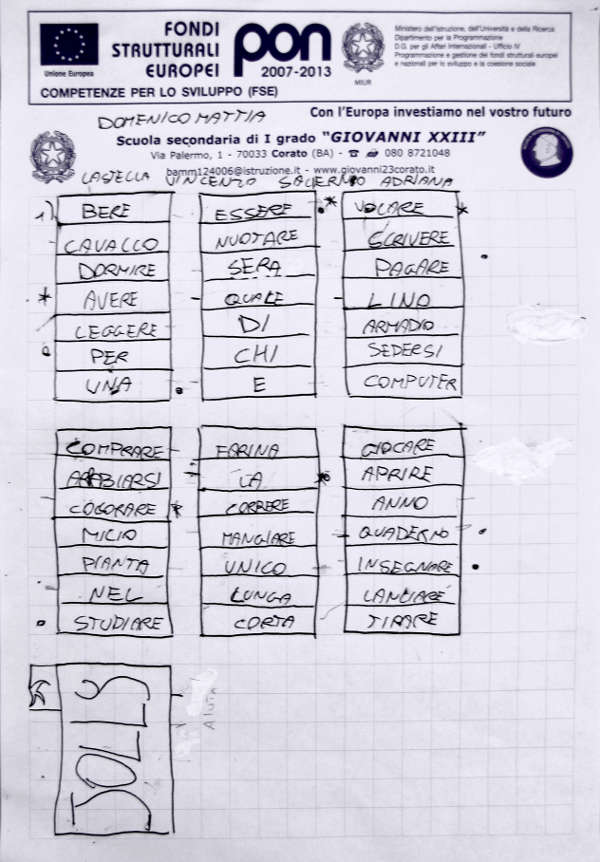 FONDI
STRUTTURALI
EUROPEI
pon
2007-2013
Unione Europea
MIUR
Ministero dell'Istruzione, dell'Università e della Ricerca
Dipartimento per la Programmazione
D.G. per gli Affari Internazionali - Ufficio IV
Programmazione e gestione dei fondi strutturali europei
e nazionali per lo sviluppo e la coesione sociale
COMPETENZE PER LO SVILUPPO (FSE)
Con l'Europa investiamo nel vostro futuro
DOMENICO MATTIA
Scuola secondaria di I grado "GIOVANNI XXIII"
Via Palermo, 1 - 70033 Corato (BA) - ☎ 080 8721048
bamm124006@istruzione.it - www.giovanni23corato.it
VINCENZO SALERNO ADRIANA
1) BERE ESSERE VOLARE
CAVALLO NUOTARE SCRIVERE
DORMIRE SERA PAGARE
AVERE QUALE LINO
LEGGERE DI ARMADIO
PER CHI SEDERSI
UNA E COMPUTER
COMPRARE FARINA GIOCARE
ARABIARSI LA APRIRE
COLORARE CORRERE ANNO
MICIO MANGIARE QUADERNO
PIANTA UNICO INSEGNARE
NEL LUNGA LANCIARE
STUDIARE CORTA TIRARE
JOLLY